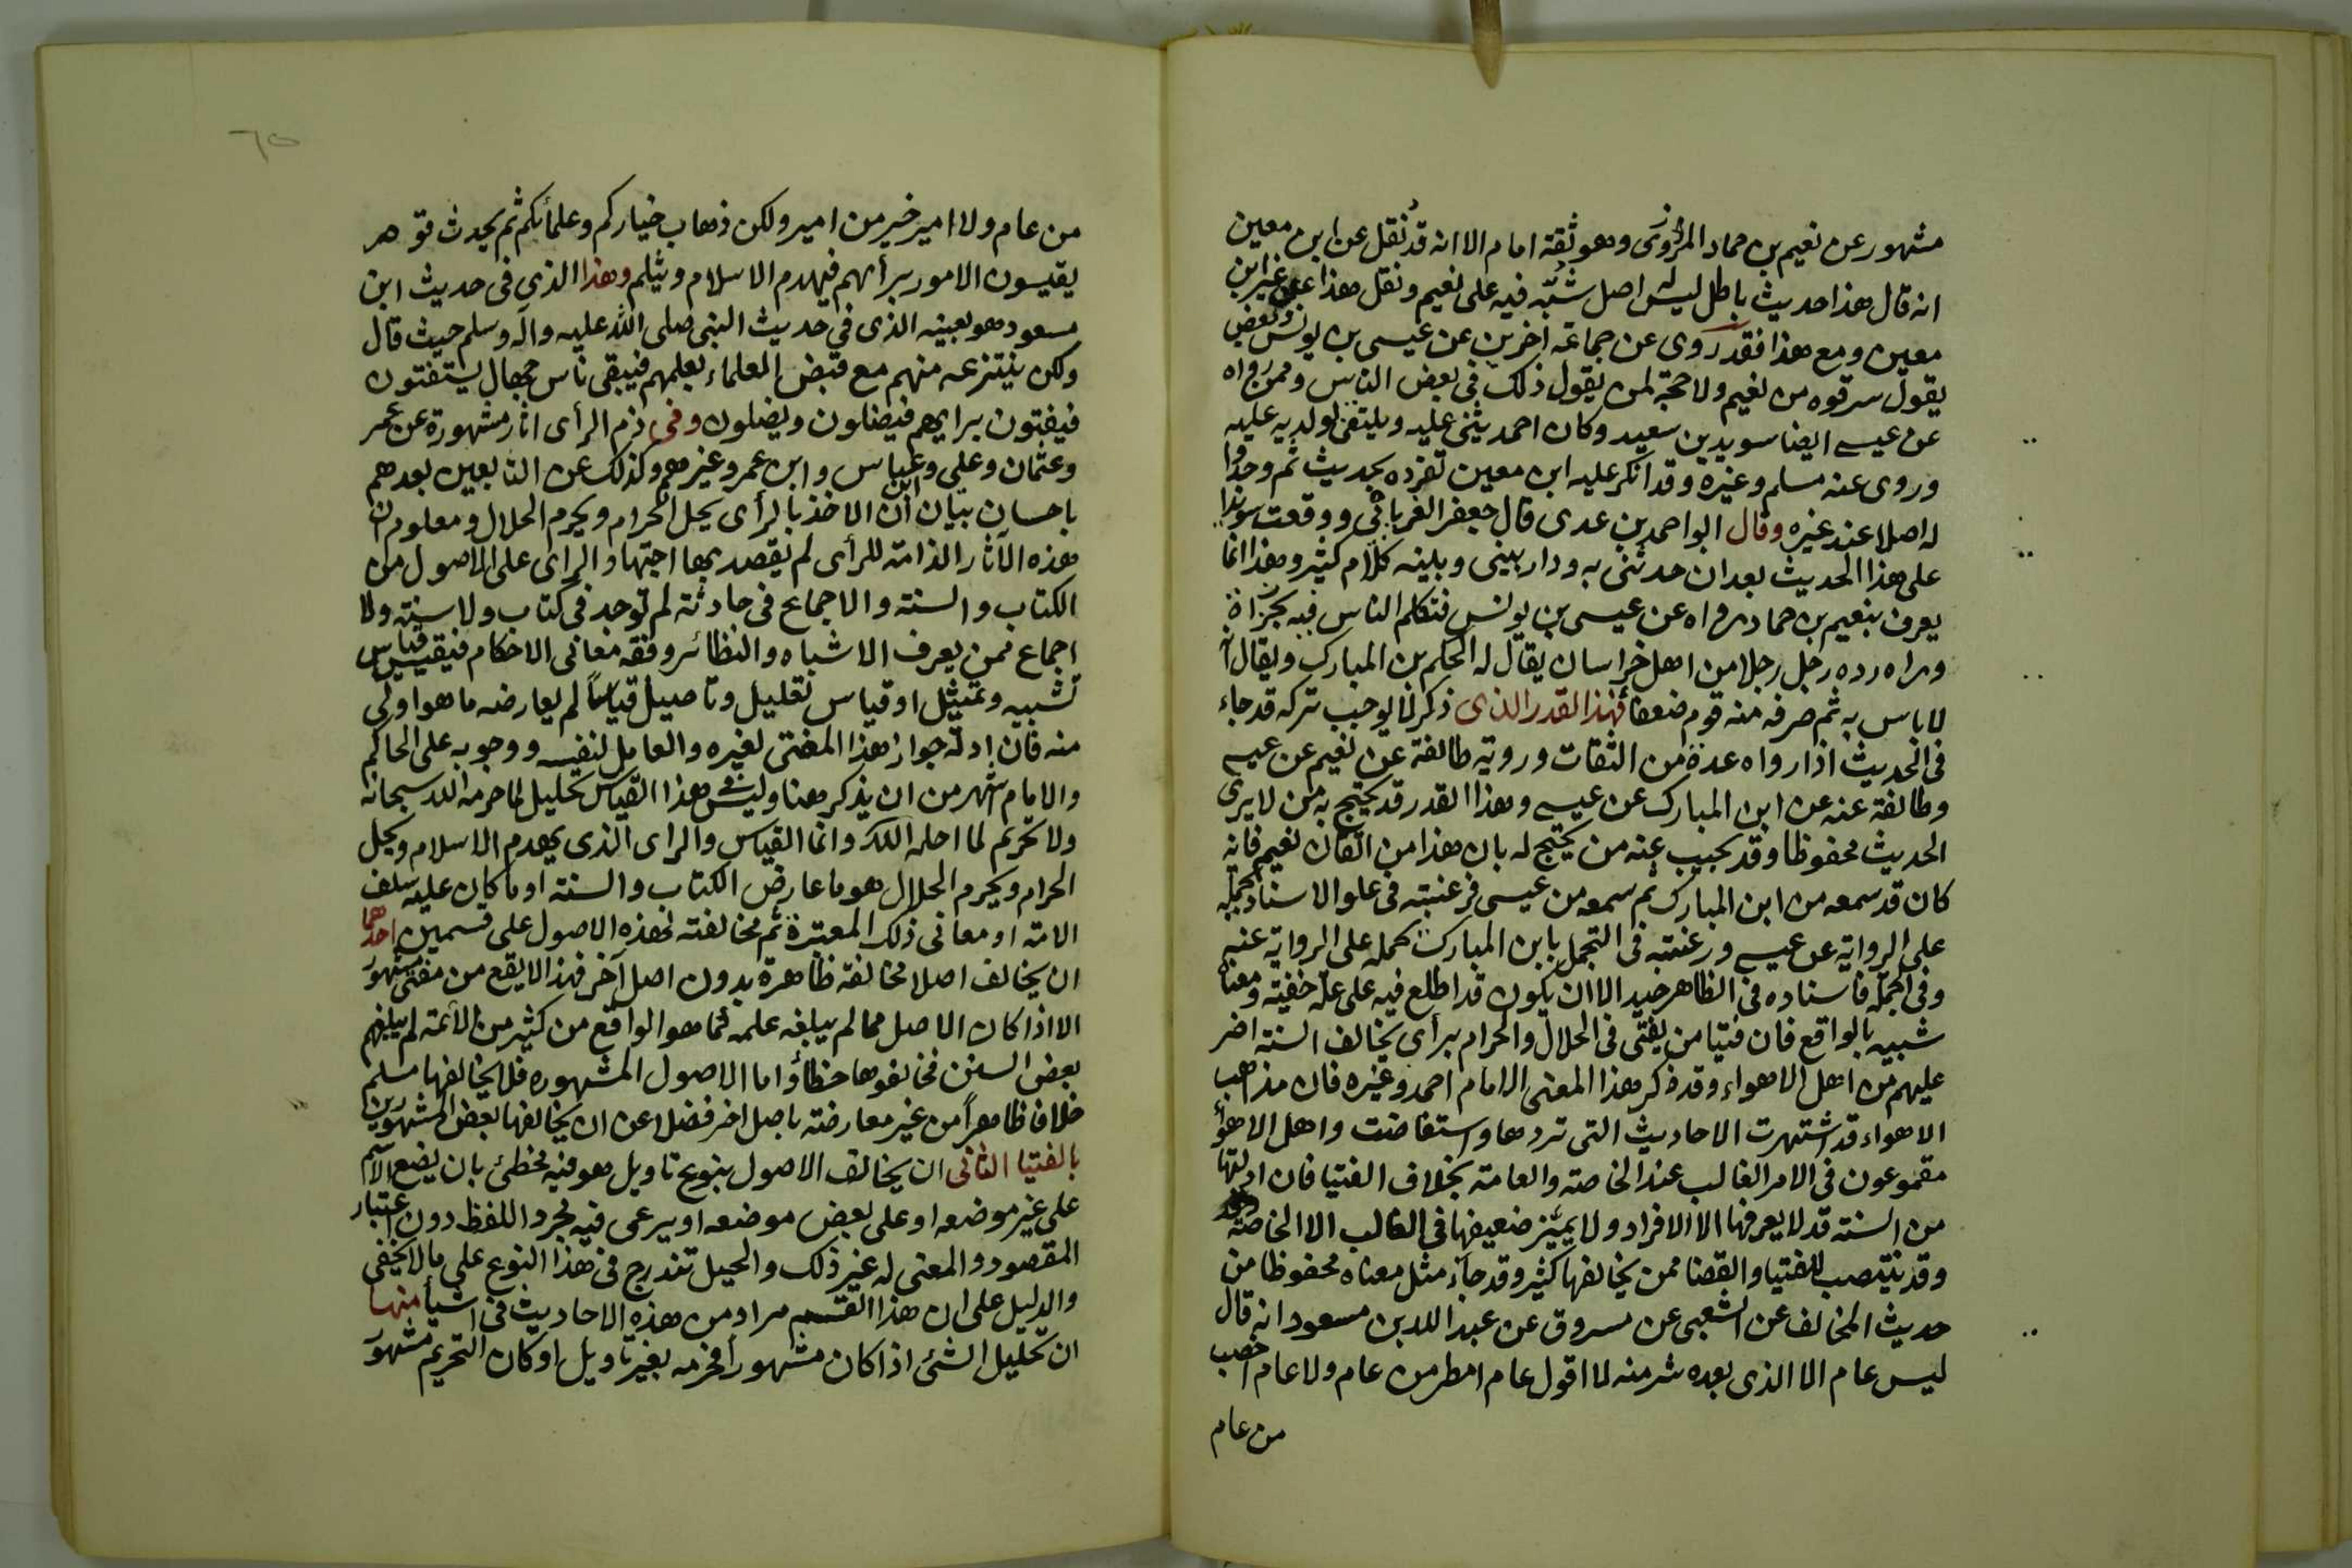 مشهور عن نعيم بن حماد المروزى وهو ثقة امام الا انه قد نقل عن ابن معين
انه قال هذا حديث باطل ليس له اصل شبّه فيه على نعيم ونقل هذا عن غير ابن
معين ومع هذا فقد روى عن جماعة اخرين عن عيسى بن يونس وبعض
يقول سرقوه من نعيم ولا حجة لمن يقول ذلك فى بعض الناس وممن رواه
عن عيسى ايضا سويد بن سعيد وكان احمد يثنى عليه وينتقى لولديه عليه
وروى عنه مسلم وغيره وقد انكر عليه ابن معين تفرده بحديث ثم وجدوا
له اصلا عند غيره وقال ابو احمد بن عدى قال جعفر الفريابى ووقفت سويدا
على هذا الحديث بعد ان حدثنى به ودار بينى وبينه كلام كثير وهذا انما
يعرف بنعيم بن حماد رواه عن عيسى بن يونس فتكلم الناس فيه بجراه
ورواه رده رجل رجلا من اهل خراسان يقال له الحكم بن المبارك ويقال انه
لا باس به ثم صرفه منه قوم ضعفا فهذا القدر الذى ذكر لا يوجب تركه قد جاء
فى الحديث اذا رواه عدة من الثقات ورويه طائفة عن نعيم عن عيسى
وطائفة عنه عن ابن المبارك عن عيسى وهذا القدر قد يحتج به من لا يرى
الحديث محفوظا وقد يجيب عنه من يحتج له بان هذا من اتقان نعيم فانه
كان قد سمعه من ابن المبارك ثم سمعه من عيسى فرغبته فى علو الاسناد تحمله
على الرواية عن عيسى ورغبته فى التجمل بابن المبارك تحمله على الرواية عنه
وفى الجملة فاسناده فى الظاهر جيد الا ان يكون قد اطلع فيه على علة خفية ومعناه
شبيه بالواقع فان فتيا من يفتى فى الحلال والحرام برأى يخالف السنة اضر
عليهم من اهل الاهواء وقد ذكر هذا المعنى الامام احمد وغيره فان مذاهب
الاهواء قد اشتهرت الاحاديث التى تردها واستفاضت واهل الاهوأ
مقموعون فى الامر الغالب عند الخاصة والعامة بخلاف الفتيا فان ادلتها
من السنة قد لا يعرفها الا الافراد ولا يميّز ضعيفها فى الغالب الا الخاصة
وقد ينتصب للفتيا والقضا ممن يخالفها كثير وقد جآء مثل معناه محفوظا من
حديث المخالف عن الشعبى عن مسروق عن عبد الله بن مسعود انه قال
ليس عام الا الذى بعده شر منه لا اقول عام امطر من عام ولا عام اخصب
من عام
٦٥
من عام ولا امير خير من امير ولكن ذهاب خياركم وعلمائكم ثم يحدث قوهر
يقيسون الامور برأيهم فيهدم الاسلام ويثلم وهذا الذى فى حديث ابن
مسعود هو بعينه الذى فى حديث النبى صلى الله عليه وآله وسلم حيث قال
ولكن ينتزعه منهم مع قبض العلماء بعلمهم فيبقى ناس جهال يستفتون
فيفتون برايهم فيضلون ويضلون وفى ذم الرأى اثار مشهورة عن عمر
وعثمان وعلى وابن عباس وابن عمر وغيرهم وكذلك عن التابعين بعدهم
باحسان بيان ان الاخذ بالرأى يحل الحرام ويحرم الحلال ومعلوم ان
هذه الآثار الذامة للرأى لم يقصد بها اجتهاد الراى على الاصول من
الكتاب والسنة والاجماع فى حادثة لم توجد فى كتاب ولا سنة ولا
اجماع فمن يعرف الاشباه والنظائر وفقه معانى الاحكام فيقيس قياس
تشبيه وتمثيل او قياس تعليل وتاصيل قياسًا لم يعارضه ما هو اولى
منه فان ادلة جواز هذا المفتى لغيره والعامل لنفسه ووجوبه على الحاكم
والامام اشهر من ان يذكر هنا وليس فى هذا القياس تحليل لما حرمه الله سبحانه
ولا تحريم لما احله الله وانما القياس والراى الذى يهدم الاسلام ويحل
الحرام ويحرم الحلال هو ما عارض الكتاب والسنة او ما كان عليه سلف
الامة او معانى ذلك المعتبرة ثم مخالفته لهذه الاصول على قسمين احدهما
ان يخالف اصلا مخالفة ظاهرة بدون اصل آخر فهذا لا يقع من مفتى مشهور
الا اذا كان الاصل مما لم يبلغه علمه كما هو الواقع من كثير من الأئمة لم يبلغهم
بعض السنن فخالفوها خطأ واما الاصول المشهوره فلا يخالفها مسلم
خلافا ظاهراً من غير معارضة باصل اخر فضلا عن ان يخالفها بعض المشهورين
بالفتيا الثانى ان يخالف الاصول بنوع تاويل هو فيه مخطئ بان يضع الاسم
على غير موضعه او على بعض موضعه او يرعى فيه مجرد اللفظ دون اعتبار
المقصود والمعنى له غير ذلك والحيل تندرج فى هذا النوع على ما لا يخفى
والدليل على ان هذا القسم مراد من هذه الاحاديث فى اشيأ منها
ان تحليل الشئ اذا كان مشهوراً فحرمه بغير تاويل او كان التحريم مشهور